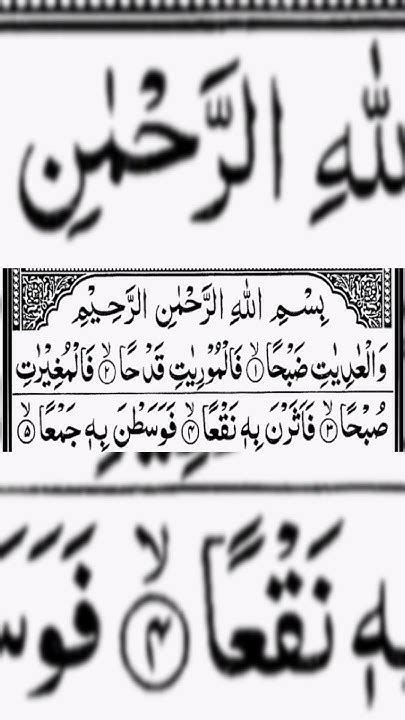 للهِ الرَّحْمٰنِ
بِسْمِ اللهِ الرَّحْمٰنِ الرَّحِيْمِ
وَالْعٰدِيٰتِ ضَبْحًا ۙ﴿۱﴾ فَالْمُوْرِيٰتِ قَدْحًا ۙ﴿۲﴾ فَالْمُغِيْرٰتِ
صُبْحًا ۙ﴿۳﴾ فَاَثَرْنَ بِهٖ نَقْعًا ۙ﴿۴﴾ فَوَسَطْنَ بِهٖ جَمْعًا ۙ﴿۵﴾
بِهٖ نَقْعًا ۙ﴿۴﴾ فَوَسَ